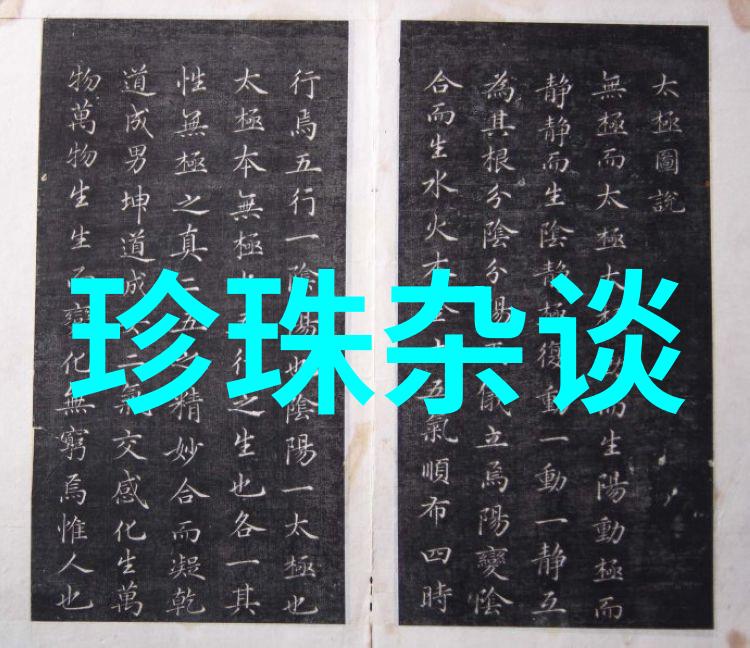 太極圖說
無極而太極太極動而生陽動極而
静静而生陰静極復動一動一静互
為其根分陰分陽兩儀立焉陽變陰
合而生水火木金土五氣順布四時
行焉五行一陰陽也陰陽一太極也
太極本無極也五行之生也各一其
性無極之真二五之精妙合而凝乾
道成男坤道成女二氣交感化生萬
物萬物生生而變化無窮焉惟人也
珍珠杂谈